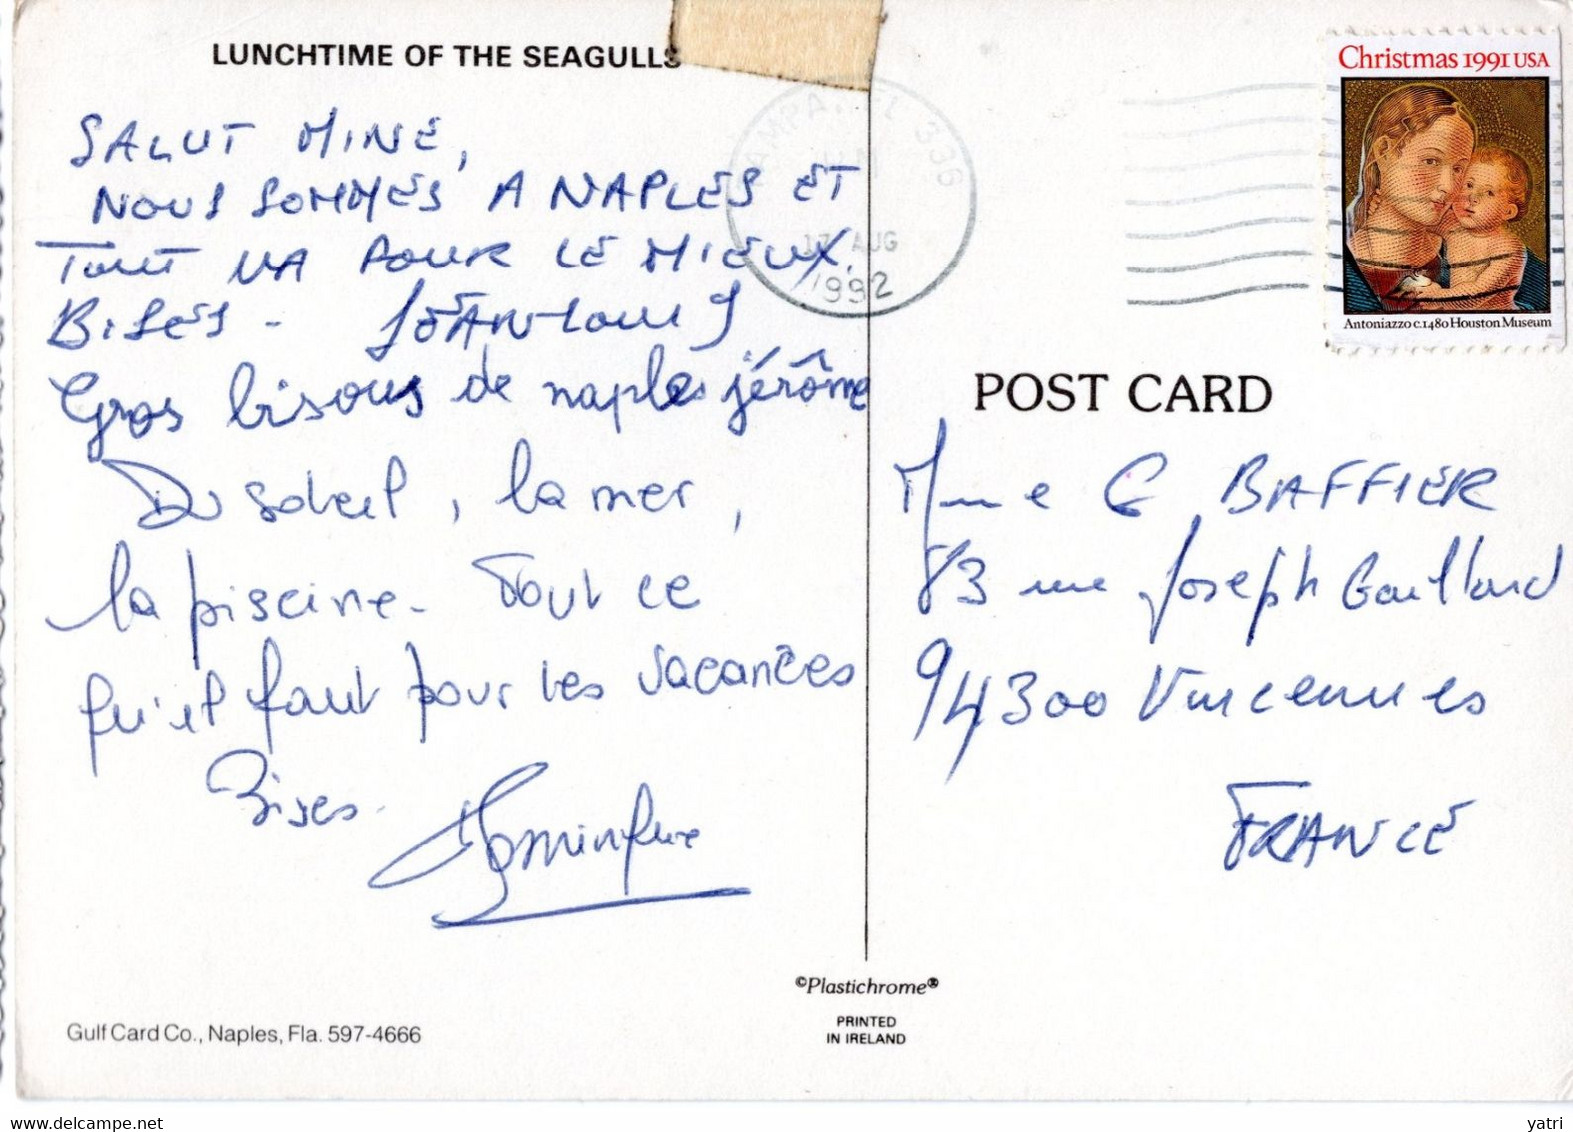 LUNCHTIME OF THE SEAGULLS
SALUT MINE,
NOUS SOMMES A NAPLES ET
TOUT VA POUR LE MIEUX.
BISES - JEAN-LOUIS
Gros bisous de naples jérôme
Du soleil, la mer,
la piscine. Tout ce
qu'il faut pour les vacances
Bises.
Dominique
Gulf Card Co., Naples, Fla. 597-4666
©Plastichrome®
PRINTED
IN IRELAND
TAMPA, FL 336
17 AUG
1992
Christmas 1991 USA
Antoniazzo c.1480 Houston Museum
POST CARD
Mme G BAFFIER
83 rue Joseph Gaillard
94300 Vincennes
FRANCE
www.delcampe.net
yatri